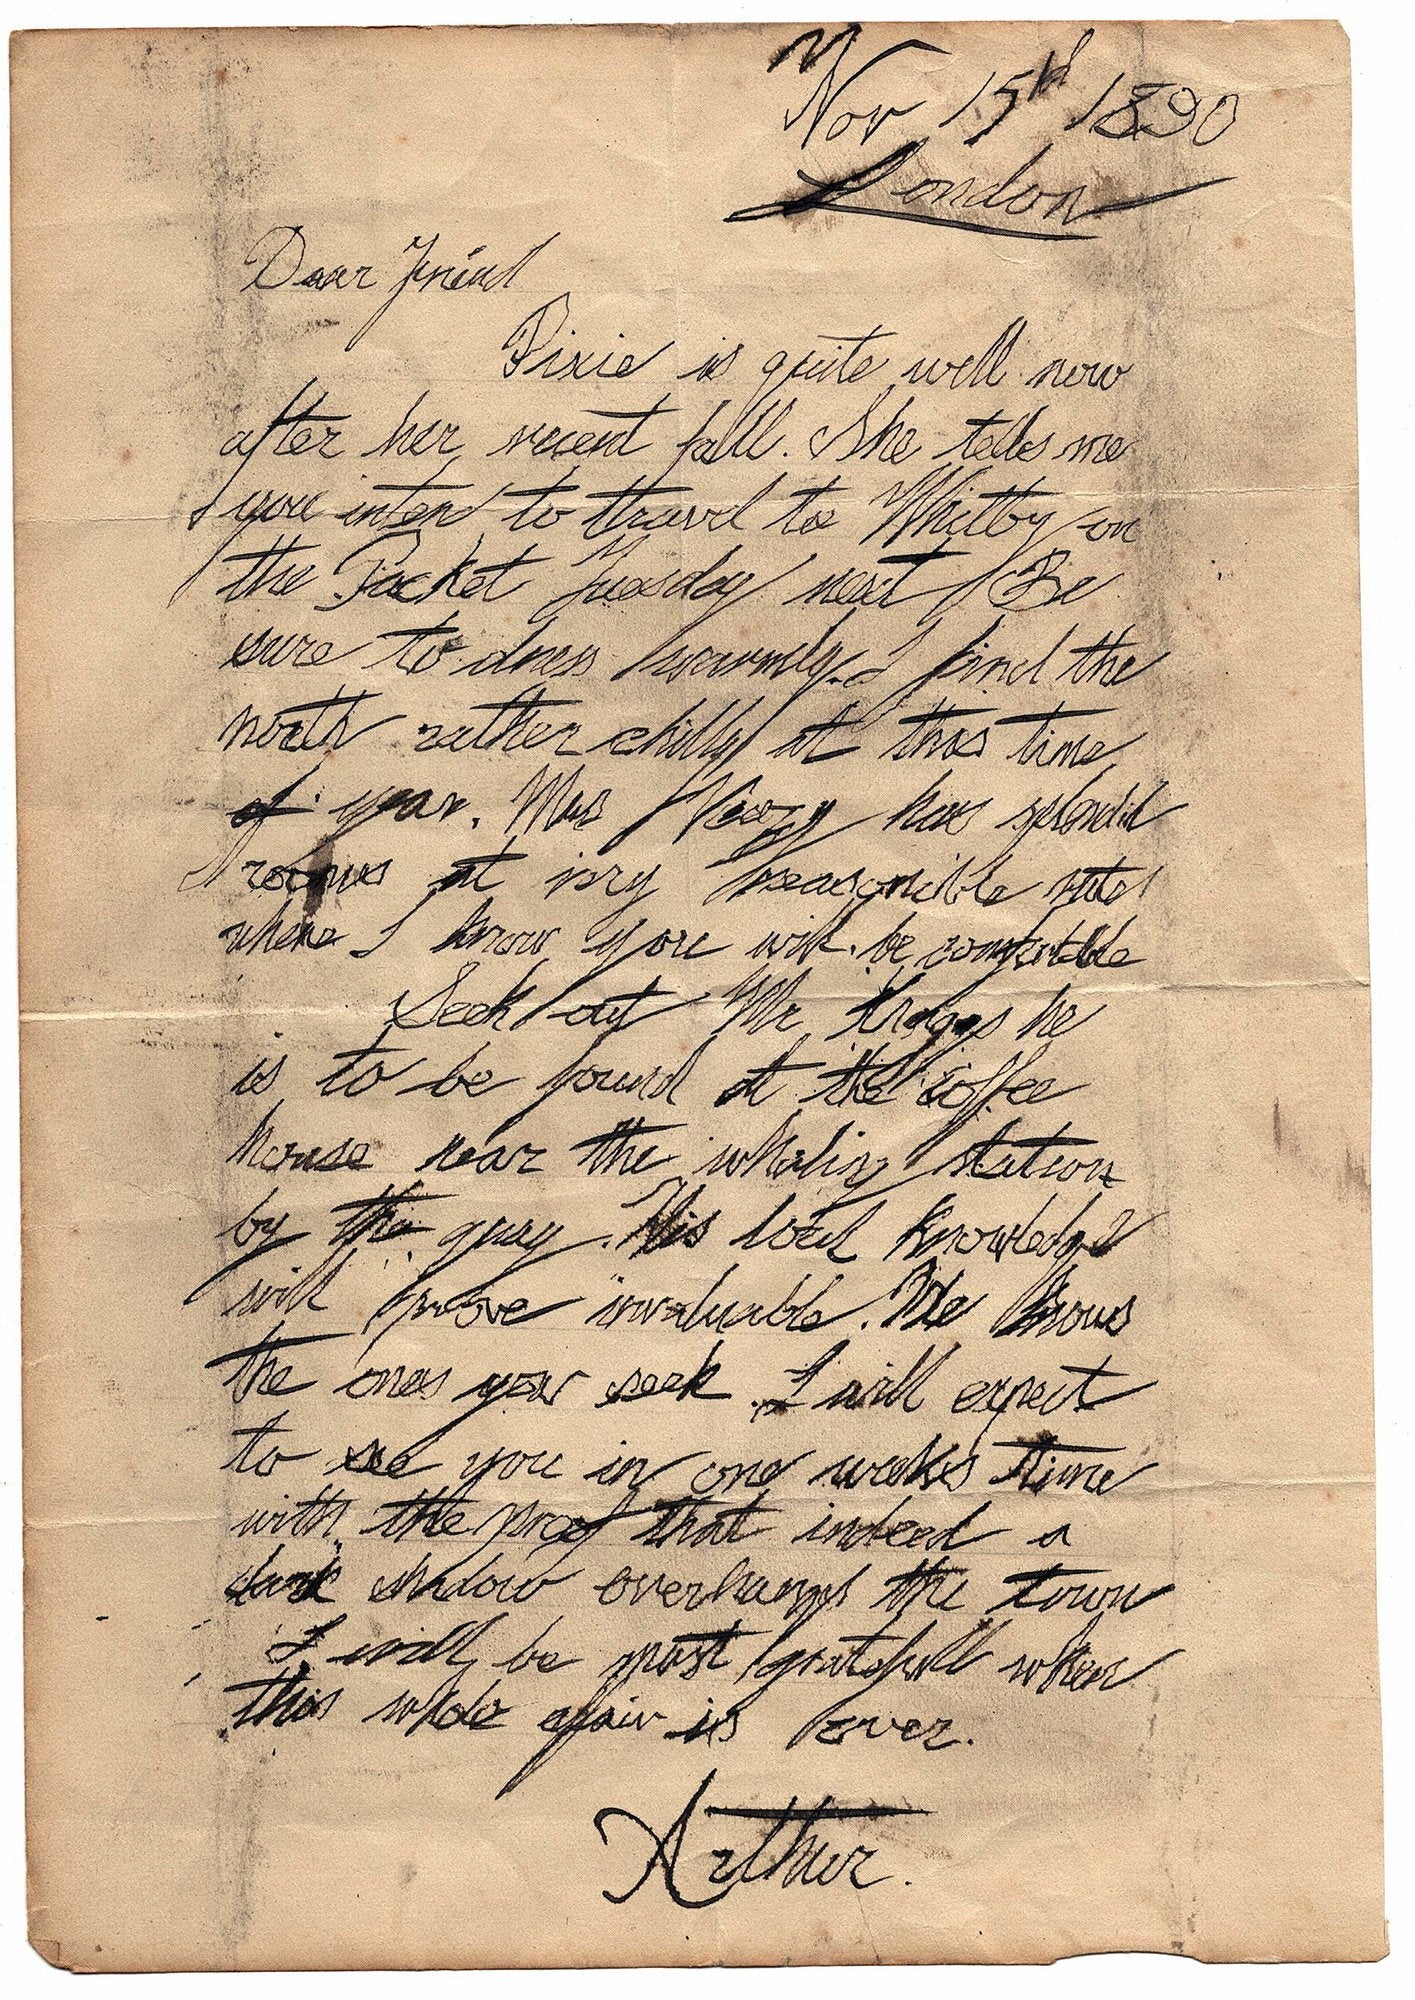 Nov 15th 1890
London
Dear Friend
Pixie is quite well now
after her recent fall. She tells me
you inten to travel to Whitby on
the Packet Tuesday next Be
sure to dress warmly. I find the
north rather chilly at this time
of year. Mrs has splendid
rooms at very reasonible rates
where I know you will be comfortable
Seek out Mr he
is to be found at the coffee
house near the whaling station
by the quay. His local knowledge
will prove invaluable. He knows
the ones you seek. I will expect
to see you in one weeks time
with the proof that indeed a
dark shadow overhangs the town
I will be most gratefull when
this whole afair is over.
Arthur.